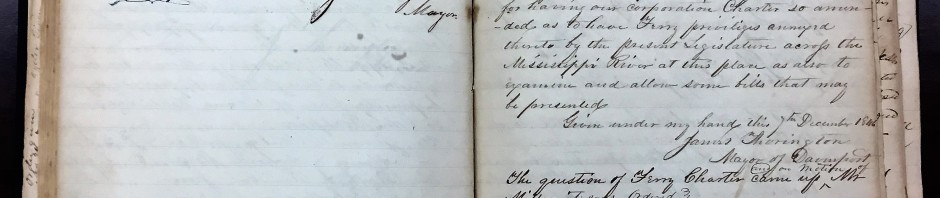 Mayor.
for having our corporation Charter so amen-
-ded as to have Ferry priviliges annexed
thereto by the present Legislature across the
Mississippi River at this place as also to
examine and allow some bills that may
be presented
Given under my hand this 7th December 184
James Thorington
Mayor of Davenport
and on Motion of
The question of Ferry Charter came up Mr